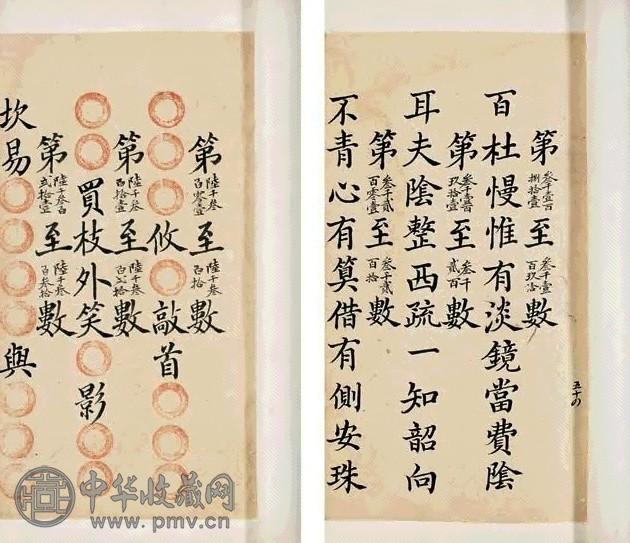 第叁千壹百捌拾壹至叁千壹百玖拾數
百杜慢惟有淡鏡當費陰
第叁千壹百玖拾壹至叁千貳百數
耳夫陰整西疏一知韶向
第叁千貳百零壹至叁千貳百拾數
不青心有算借有側安珠
第陸千叁百零壹至陸千叁百拾數
攸敲首
第陸千叁百拾壹至陸千叁百貳拾數
買枝外笑影
第陸千叁百貳拾壹至陸千叁百叁拾數
坎易與
中华收藏网
www.pmv.cn